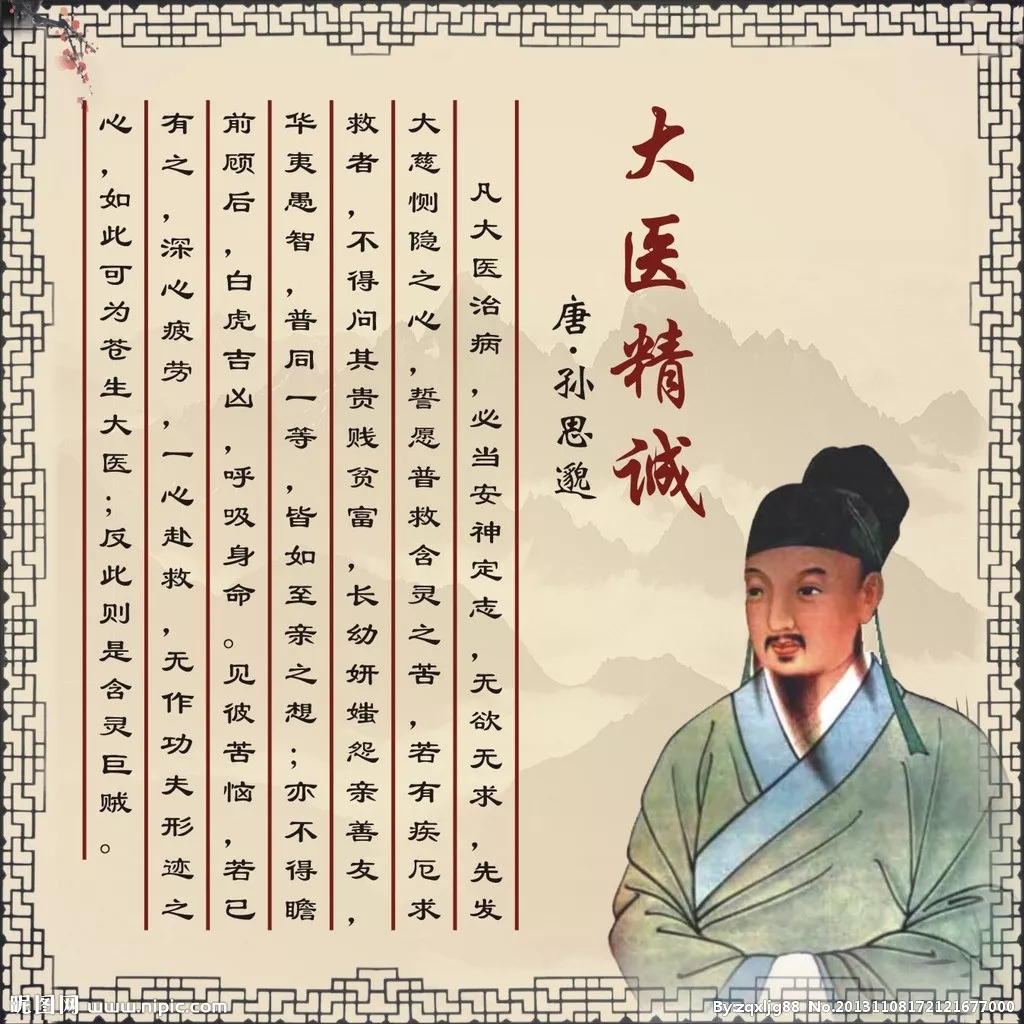 大医精诚
唐·孙思邈
凡大医治病，必当安神定志，无欲无求，先发
大慈恻隐之心，誓愿普救含灵之苦，若有疾厄求
救者，不得问其贵贱贫富，长幼妍媸怨亲善友，
华夷愚智，普同一等，皆如至亲之想；亦不得瞻
前顾后，白虎吉凶，呼吸身命。见彼苦恼，若已
有之，深心疲劳，一心赴救，无作功夫形迹之
心，如此可为苍生大医；反此则是含灵巨贼。
昵图网 www.nipic.com
By:zqxljg88 No.20131108172121677000